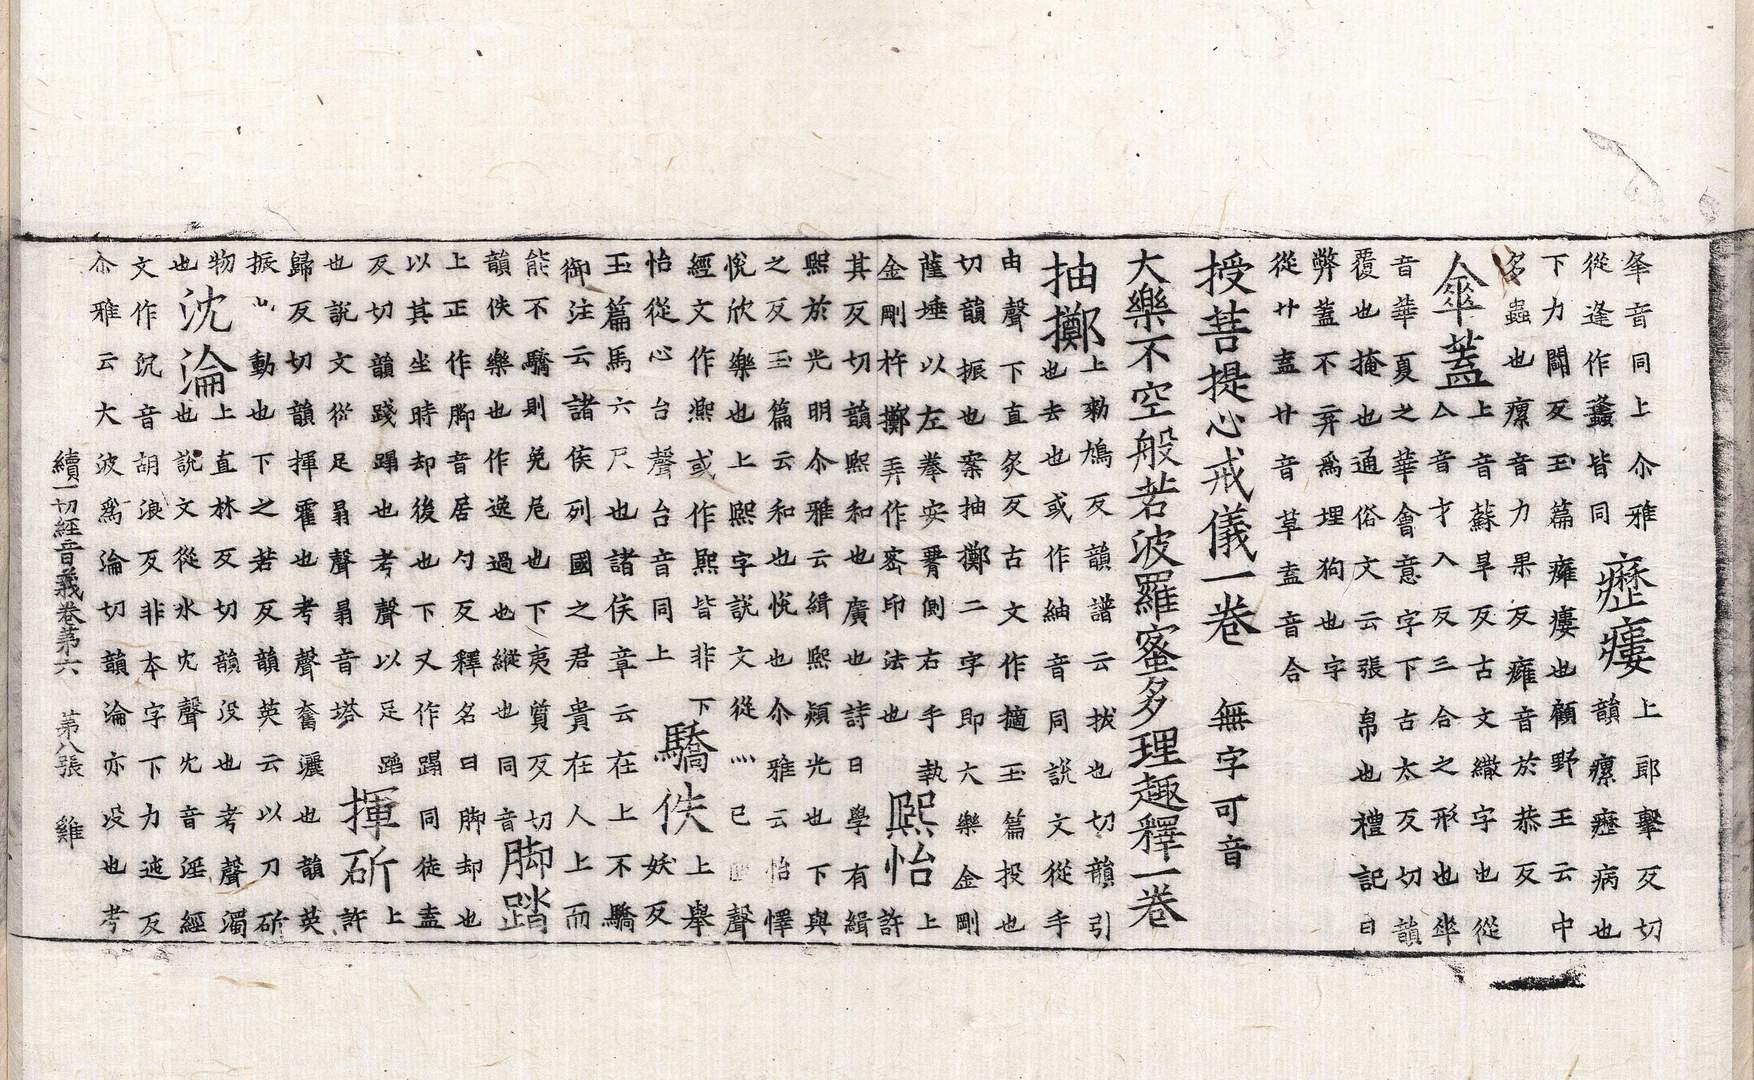 夆音同上尒雅
從逢作䗬皆同
瘂瘻
上郎擊反切
韻瘰癧病也
下力鬪反玉篇癰瘻也顧野王云中
多蟲也瘰音力果反癰音於恭反
傘蓋
上音蘇旱反古文繖字也從
亼音才入反三合之形也傘
音華夏之華會意字下古太反切韻
覆也掩也通俗文云張帛也禮記曰
弊蓋不弃爲埋狗也字
從廾盍廾音草盍音合
授菩提心戒儀一卷 無字可音
大樂不空般若波羅蜜多理趣釋一卷
抽擲
上勑鳩反韻譜云拔也切韻引
也去也或作紬音同說文從手
由聲下直炙反古文作擿玉篇投也
切韻振也案抽擲二字即大樂金剛
薩埵以左拳安胷側右手執
金剛杵擲弄作密印法也
熙怡
上
許
其反切韻熙和也廣也詩曰學有緝
熙於光明尒雅云緝熙熲光也下與
之反玉篇云和也悅也尒雅云怡懌
悅欣樂也上熙字說文從灬巳聲
經文作凞或作熈皆非下
怡從心台聲台音同上
驕佚
上舉
妖反
玉篇馬六尺也諸侯章云在上不驕
御注云諸侯列國之君貴在人上而
能不驕則免危也下夷質反切
韻佚樂也作逸過也縱也同音
脚踏
上正作腳音居勺反釋名曰脚却也
以其坐時却後也下又作蹋同徒盍
反切韻踐蹋也考聲以足蹈
也說文從足𦐇聲𦐇音塔
揮斫
上
許
歸反切韻揮霍也考聲奮灑也韻英
振灬動也下之若反韻英云以刀斫
物也
沈淪
上直林反切韻没也考聲濁
也說文從水冘聲冘音淫經
文作沉音胡浪反非本字下力迍反
尒雅云大波爲淪切韻淪亦没也考
續一切經音義卷第六 第八張 雞